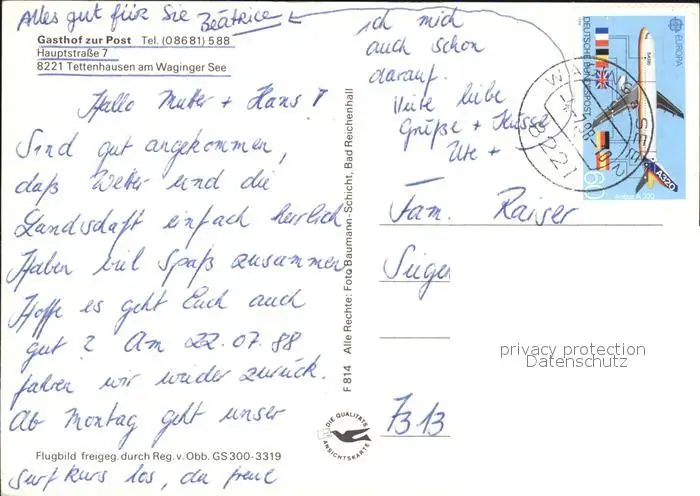 Alles gut für Sie Beátrice
Gasthof zur Post Tel. (08681) 588
Hauptstraße 7
8221 Tettenhausen am Waginger See
Hallo Mutter + Hans !
Sind gut angekommen,
daß Wetter und die
Landschaft einfach herrlich
Haben viel Spaß zusammen
Hoffe es geht Euch auch
gut ? Am 22.07.88
fahren wir wieder zurück.
Ab Montag geht unser
Flugbild freigeg. durch Reg. v. Obb. GS 300-3319
Surfkurs los, da freue
ich mich
auch schon
darauf.
Viele liebe
Grüße + Küsse
Ute +
F 814 Alle Rechte: Foto Baumann-Schicht, Bad Reichenhall
DIE QUALITÄTS
ANSICHTSKARTE
Fam. Raiser
7313
privacy protection
Datenschutz
EUROPA
DEUTSCHE BUNDESPOST
60
A320
Airbus A 320
8221